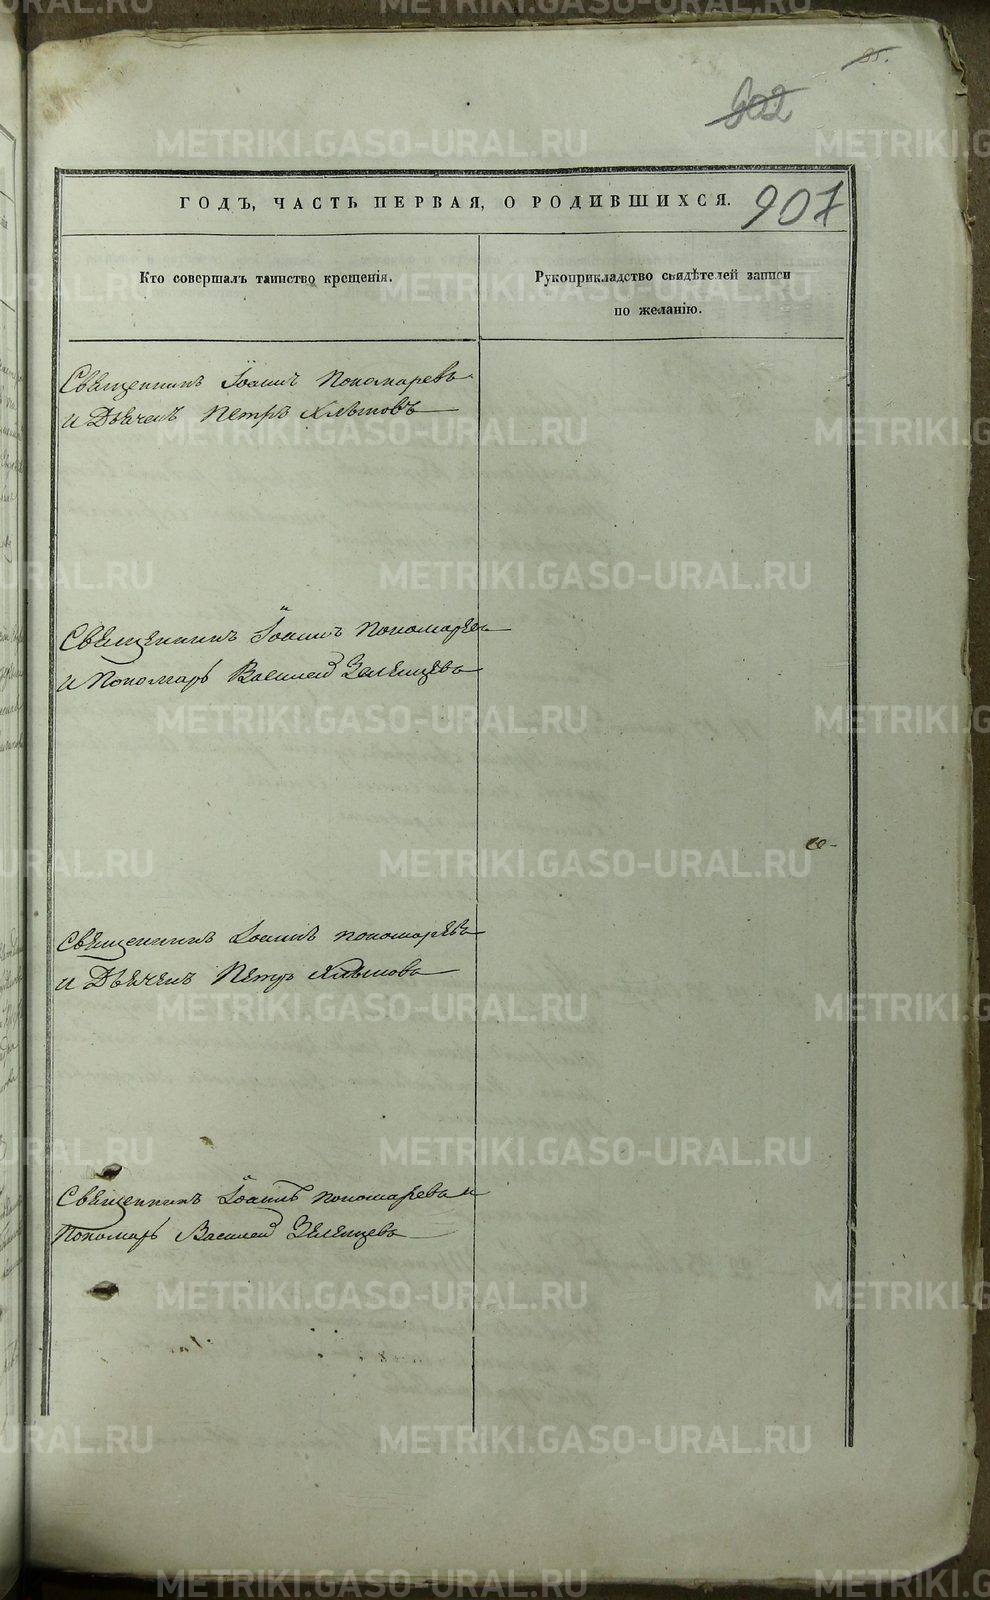 85.
602
ГОДЪ, ЧАСТЬ ПЕРВАЯ, О РОДИВШИХСЯ.
907
Кто совершалъ таинство крещенія.
Рукоприкладство свидѣтелей записи
по желанію.
Священникъ Іоаннъ Пономаревъ
и Дьячекъ Петръ
Священникъ Іоаннъ Пономаревъ
и Пономарь Василей Зеленцевъ
Священникъ Іоаннъ Пономаревъ
и Дьячекъ Петръ
Священникъ Іоаннъ Пономаревъ и
Пономарь Василей Зеленцевъ
METRIKI.GASO-URAL.RU